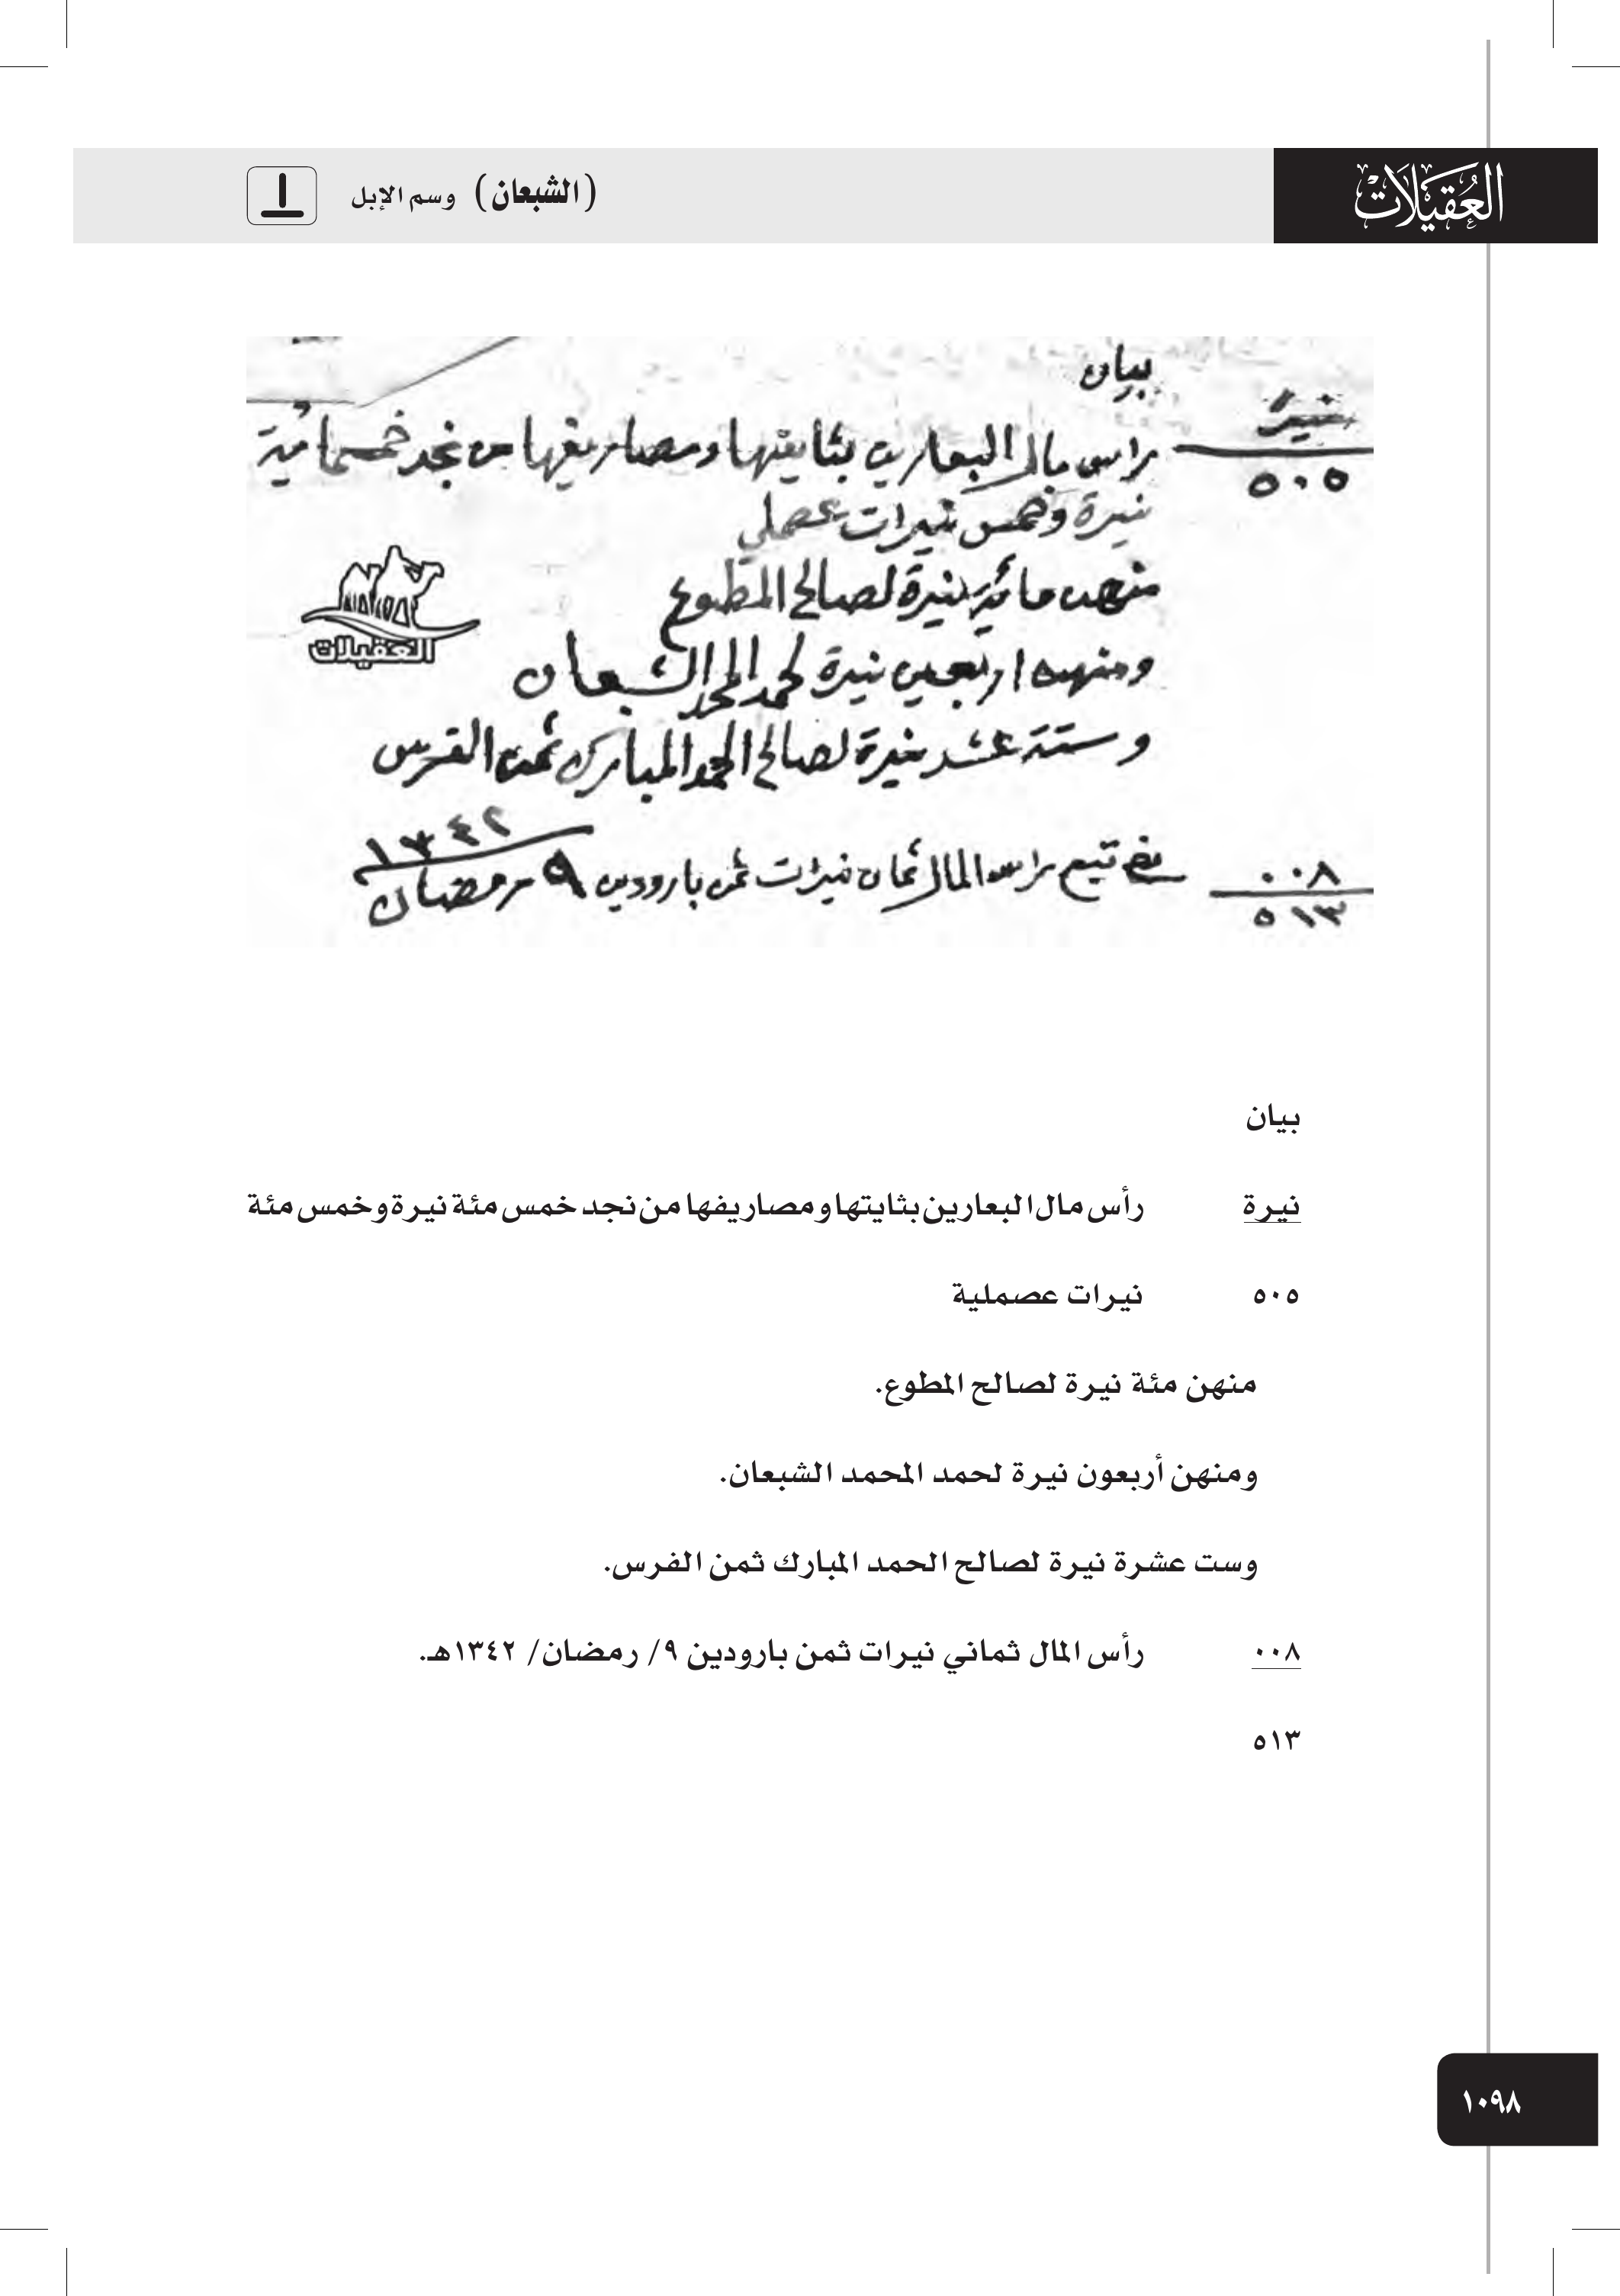 العُقَيْلَاتْ
(الشبعان) وسم الإبل
بيان
نيرة
٥٠٥
راس مال البعارين بثايتها ومصاريفها من نجد خمسمائية
نيرة وخمس نيرات عصملي
منهن مائية نيرة لصالح المطوع
العقيلات
ومنهن اربعين نيرة لحمد المحمد الشبعان
وستة عشر نيرة لصالح الحمد المبارك ثمن الفرس
٠٠٨
٥١٣
تبع راس المال ثمان نيرات ثمن بارودين ٩ رمضان ١٣٤٢
بيان
نيرة رأس مال البعارين بثايتها ومصاريفها من نجد خمس مئة نيرة وخمس مئة
٥٠٥ نيرات عصملية
منهن مئة نيرة لصالح المطوع.
ومنهن أربعون نيرة لحمد المحمد الشبعان.
وست عشرة نيرة لصالح الحمد المبارك ثمن الفرس.
٠٠٨ رأس المال ثماني نيرات ثمن بارودين ٩/ رمضان/ ١٣٤٢هـ.
٥١٣
١٠٩٨